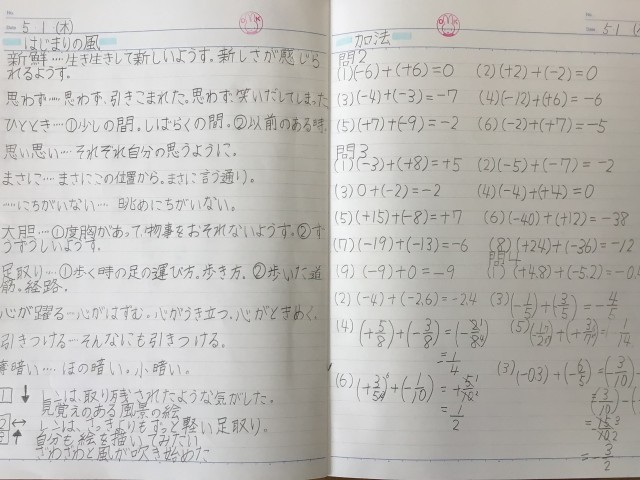 No.
Date 5・1 (木)
はじまりの風
新鮮‥‥生き生きして新しいようす。新しさが感じら
れるようす。
思わず‥‥思わず、引きこまれた。思わず、笑いだしてしまった
ひととき‥‥①少しの間。しばらくの間。②以前のある時。
思い思い‥‥それぞれ自分の思うように。
まさに‥‥まさにこの位置から。まさに言う通り。
‥‥にちがいない‥‥ 眺めにちがいない。
大胆‥‥①度胸があって物事をおそれないようす。②ず
うずうしいようす。
足取り‥‥①歩く時の足の運び方。歩き方。②歩いた道
筋。経路。
心が躍る‥‥心がはずむ。心がうき立つ。心がときめく。
引きつける‥‥そんなにも引きつける。
暗い‥‥ほの暗い。小暗い。
1 ↓ レンは、取り残されたような気がした。
見覚えのある風景の絵
2 ↔ レンは、さっきよりもずっと軽い足取り。
自分も絵を描いてみたい
ざわざわと風が吹き始めた
No.
Date 5・1
加法
問2
(1)(-6)+(+6)=0 (2)(+2)+(-2)=0
(3)(-4)+(-3)=-7 (4)(-12)+(+6)=-6
(5)(+7)+(-9)=-2 (6)(-2)+(+7)=-5
問3
(1)(-3)+(+8)=+5 (2)(-5)+(-7)=-2
(3)0+(-2)=-2 (4)(-4)+(+4)=0
(5)(+15)+(-8)=+7 (6)(-40)+(+12)=-38
(7)(-19)+(-13)=-6 (8)(+24)+(-36)=-12
問4
(9)(-9)+0=-9 (1)(+4.8)+(-5.2)=-0.
(2)(-4)+(-2,6)=-2.4 (3)(-1/5)+(-3/5)=-4/5
(4)(+5/8)+(-3/8)= (5) 1/14
=1/4
(6)(+3/5)+(-1/10)=+5/10 (3)(-0.3)+(-6/5)=(-3/10)
=1/2
=-3/2